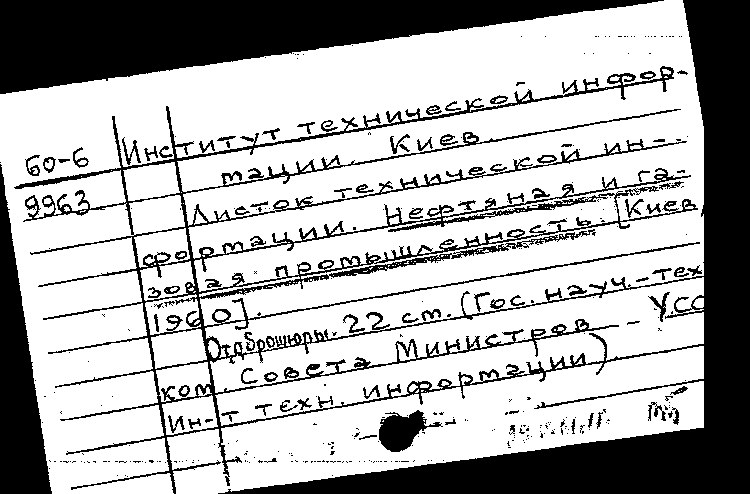 60-6
9963
Институт технической инфор-
мации. Киев.
Листок технической ин-
формации. Нефтяная и га-
зовая промышленность. [Киев,
1960].
Отд. брошюры. 22 см. (Гос. науч.-тех
ком. Совета Министров - УСС
Ин-т техн. информации)